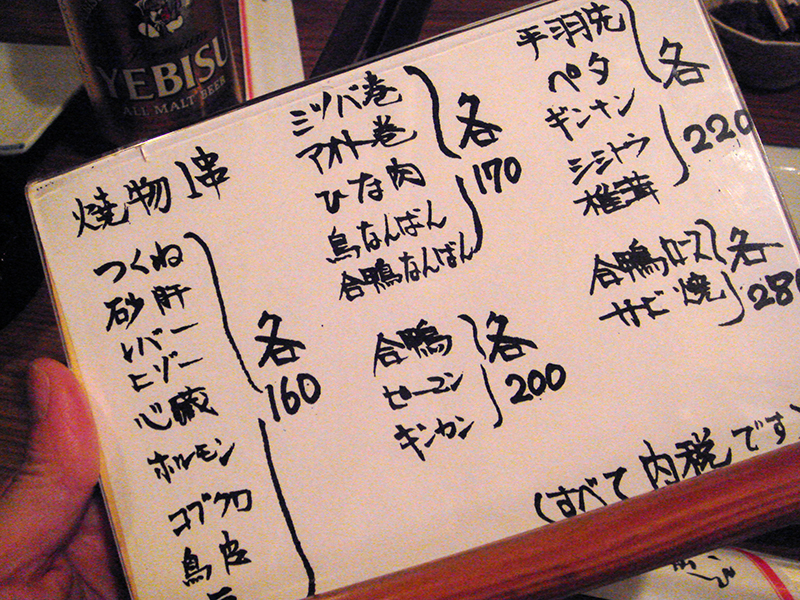 YEBISU
ALL MALT BEER
焼物1串
つくね
砂肝
レバー
ヒゾー
心臓
ホルモン
コブクロ
鳥皮
各
160
ミツバ巻
アオト巻
ひな肉
鳥なんばん
合鴨なんばん
各
170
合鴨
ピーマン
キンカン
各
200
手羽先
ペタ
ギンナン
シシトウ
椎茸
各
220
合鴨ロース
サビ焼
各
28
(すべて内税です)